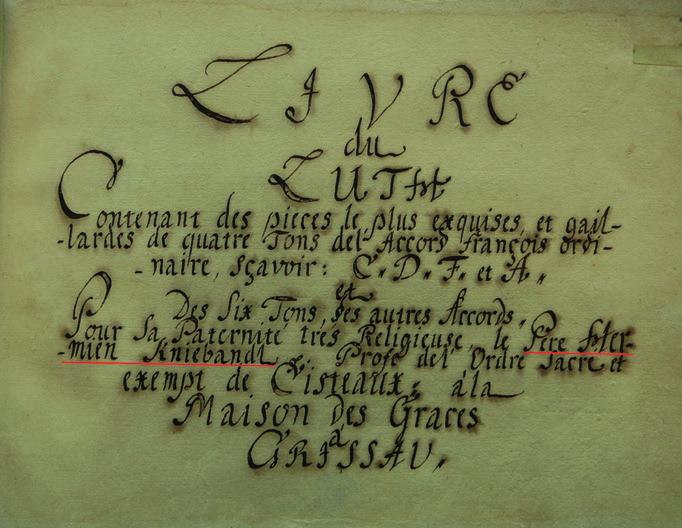 LIVRE
du
LUTH
Contenant des pieces le plus exquises, et gail-
-lardes de quatre Tons del' Accord françois ordi-
-naire, sçavoir: C. D. F. et A.
et
Des Six Tons, des autres Accords.
Pour Sa Paternité trés Religieuse, le Pere Her-
-mien Kniebandl, Profe del' Ordre Sacré et
exempt de Cisteaux: à la
Maison des Graces
à
GRISSAU.